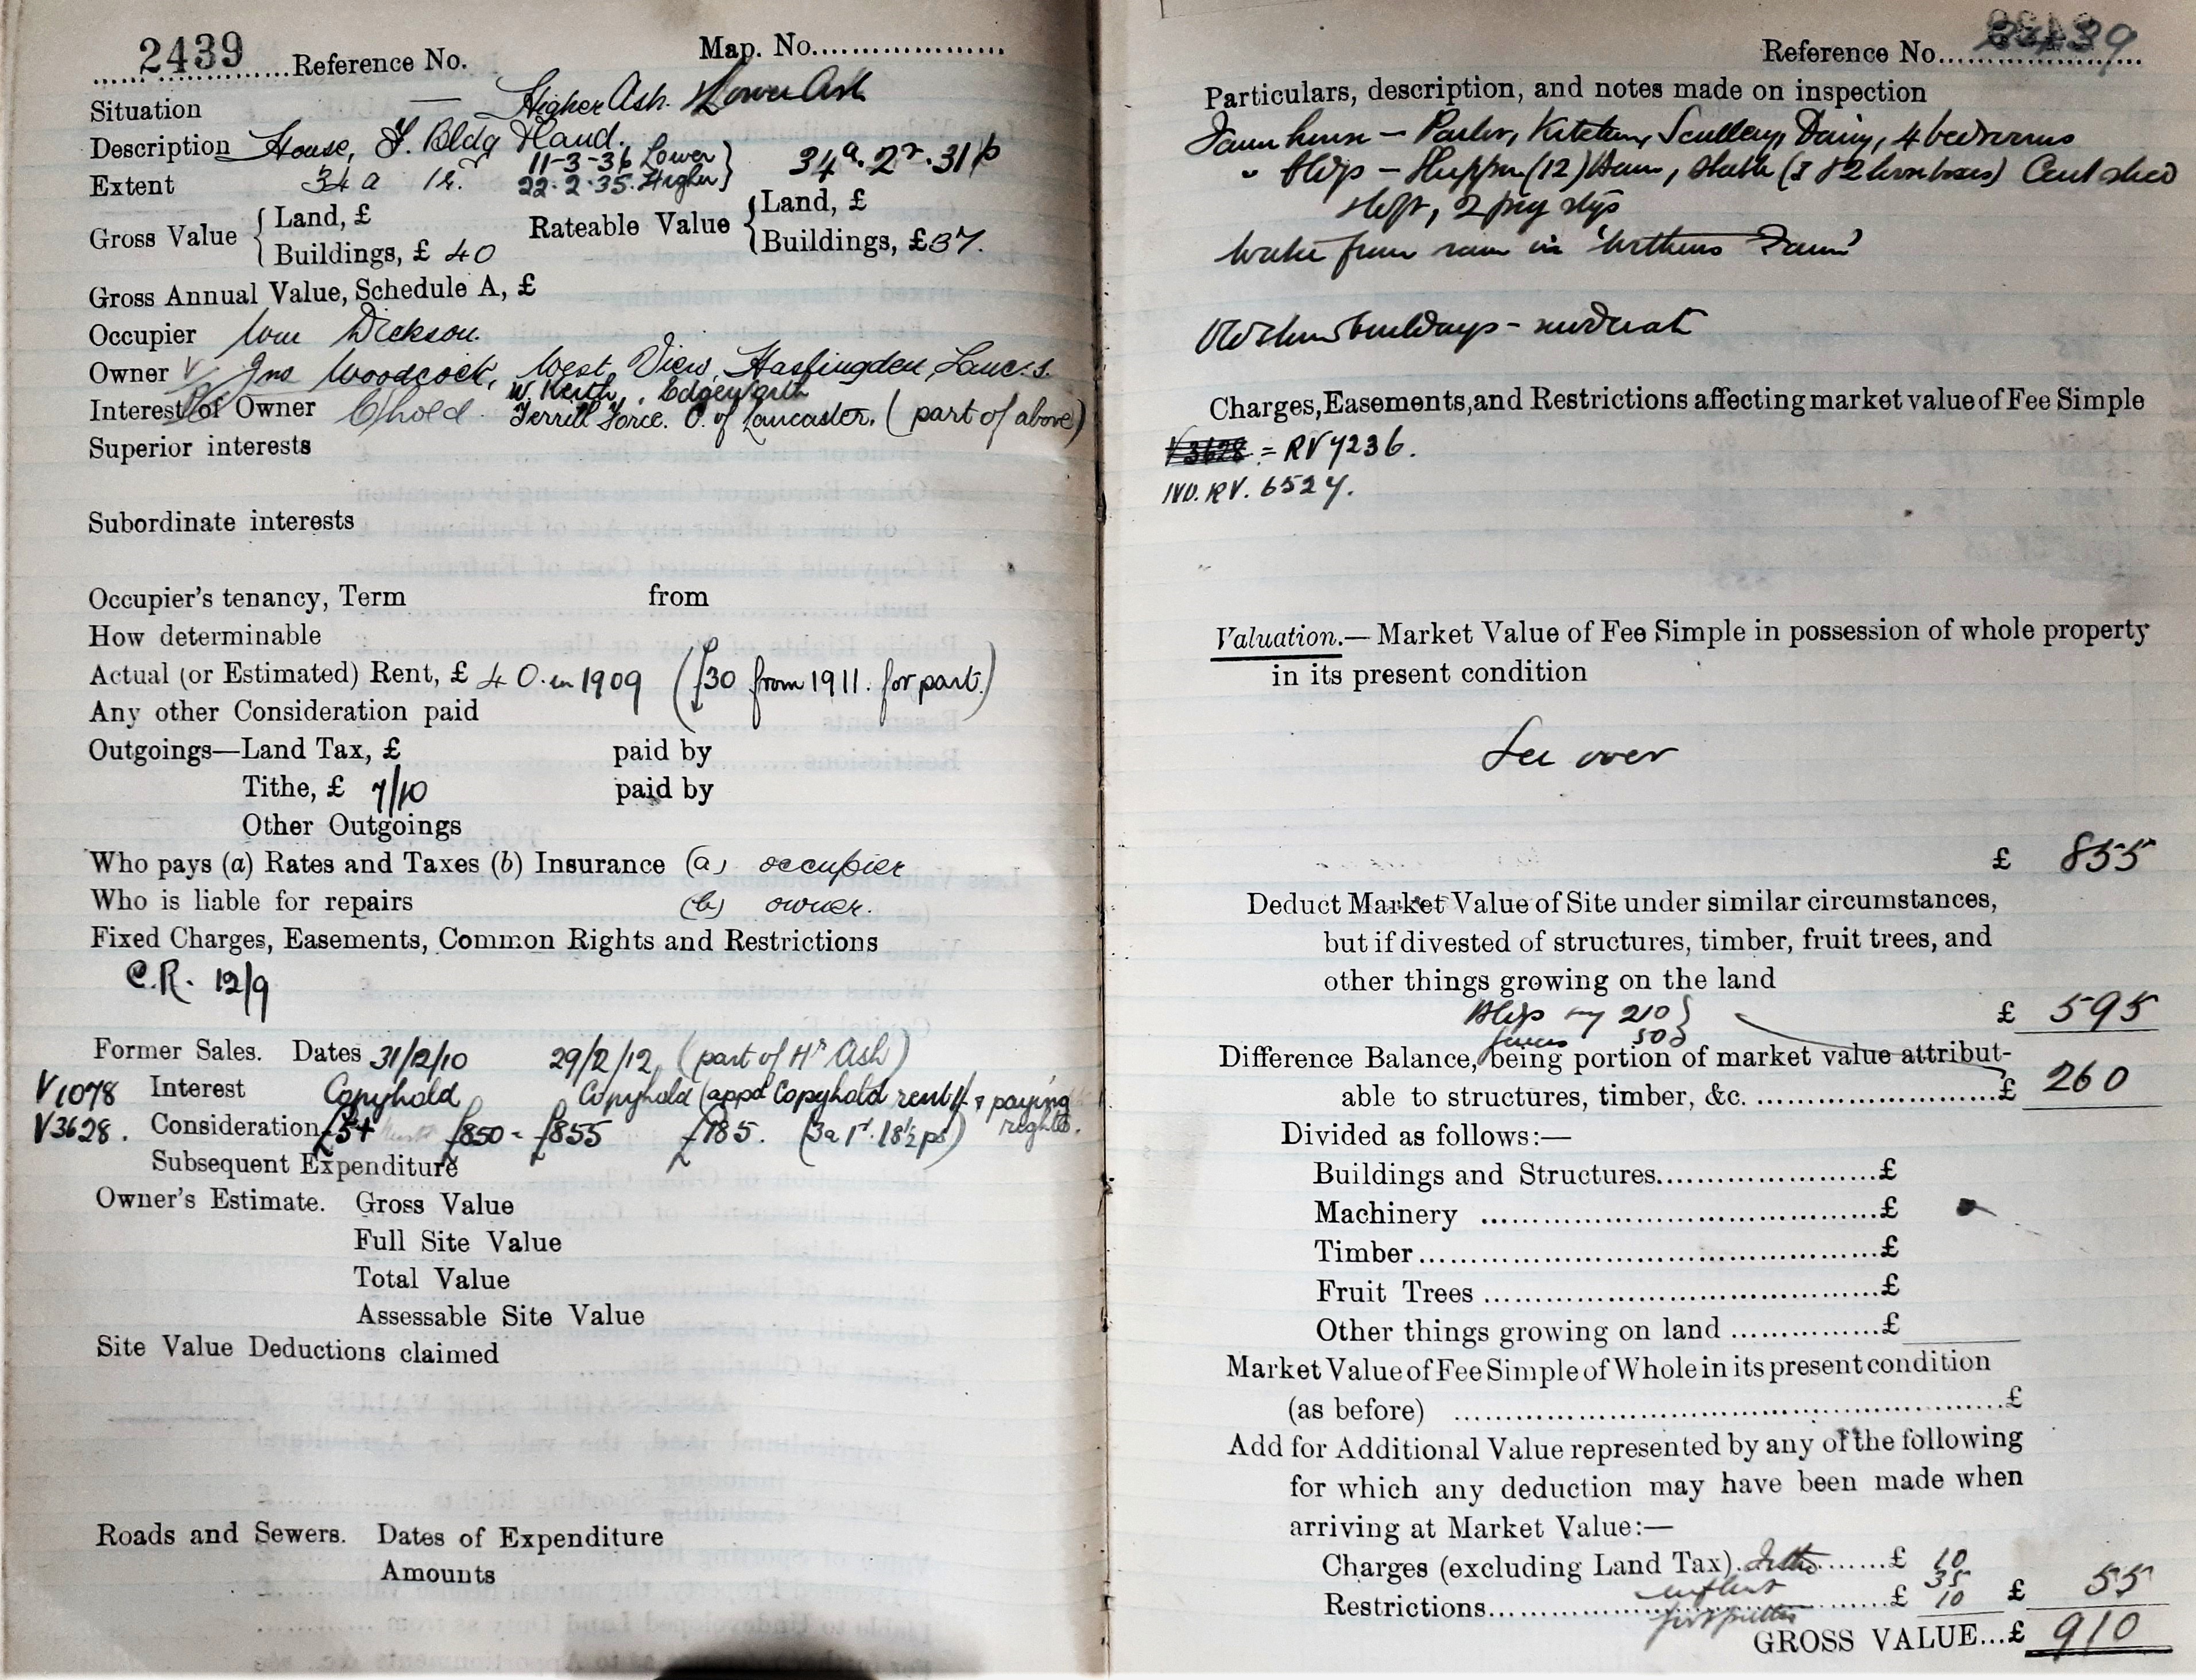 2439 Reference No. Map. No.
Situation — Higher Ash. Lower Ash
Description House, F. Bldg & Land.
Extent 34a 1r. 11-3-36 Lower } 34a. 2r. 31p
22.2.35. Higher
Gross Value { Land, £ Rateable Value { Land, £
Buildings, £ 40 Buildings, £37.
Gross Annual Value, Schedule A, £
Occupier Wm Dickson.
Owner Jno Woodcock, West View, Haslingden, Lancs.
W. Keith, Edgeworth
Interest of Owner C/hold. Terrill Force. C. of Lancaster. (part of above)
Superior interests
Subordinate interests
Occupier's tenancy, Term from
How determinable
Actual (or Estimated) Rent, £ 40. in 1909 (£30 from 1911. for part.)
Any other Consideration paid
Outgoings—Land Tax, £ paid by
Tithe, £ 7/10 paid by
Other Outgoings
Who pays (a) Rates and Taxes (b) Insurance (a) occupier
Who is liable for repairs (b) owner.
Fixed Charges, Easements, Common Rights and Restrictions
C.R. 12/9
Former Sales. Dates 31/12/10 29/2/12 (part of Hr Ash)
V1078 Interest Copyhold Copyhold (appd Copyhold rent & paying
V3628. Consideration £5+ £850 - £855 £185. (3a 1r. 18½ps) rights.
Subsequent Expenditure
Owner's Estimate. Gross Value
Full Site Value
Total Value
Assessable Site Value
Site Value Deductions claimed
Roads and Sewers. Dates of Expenditure
Amounts
Reference No. 2439
Particulars, description, and notes made on inspection
Farmhouse — Parlor, Kitchen, Scullery, Dairy, 4 bedrooms
" Bldgs — Shippon (12) Barn, Stable (3 & 2 loose boxes) Cart shed
2 pig stys
Water from ram in 'Withens Farm'
Old stone buildings - moderate
Charges, Easements, and Restrictions affecting market value of Fee Simple
V3628 = RV7236.
IVD. RV. 6527.
Valuation.— Market Value of Fee Simple in possession of whole property
in its present condition
See over
£ 855
Deduct Market Value of Site under similar circumstances,
but if divested of structures, timber, fruit trees, and
other things growing on the land
Bldgs say 210 } £ 595
fences 50
Difference Balance, being portion of market value attribut-
able to structures, timber, &c. £ 260
Divided as follows:—
Buildings and Structures £
Machinery £
Timber £
Fruit Trees £
Other things growing on land £
Market Value of Fee Simple of Whole in its present condition
(as before) £
Add for Additional Value represented by any of the following
for which any deduction may have been made when
arriving at Market Value:—
Charges (excluding Land Tax) Tithe £ 10
35
Restrictions footpath £ 10 £ 55
GROSS VALUE...£ 910